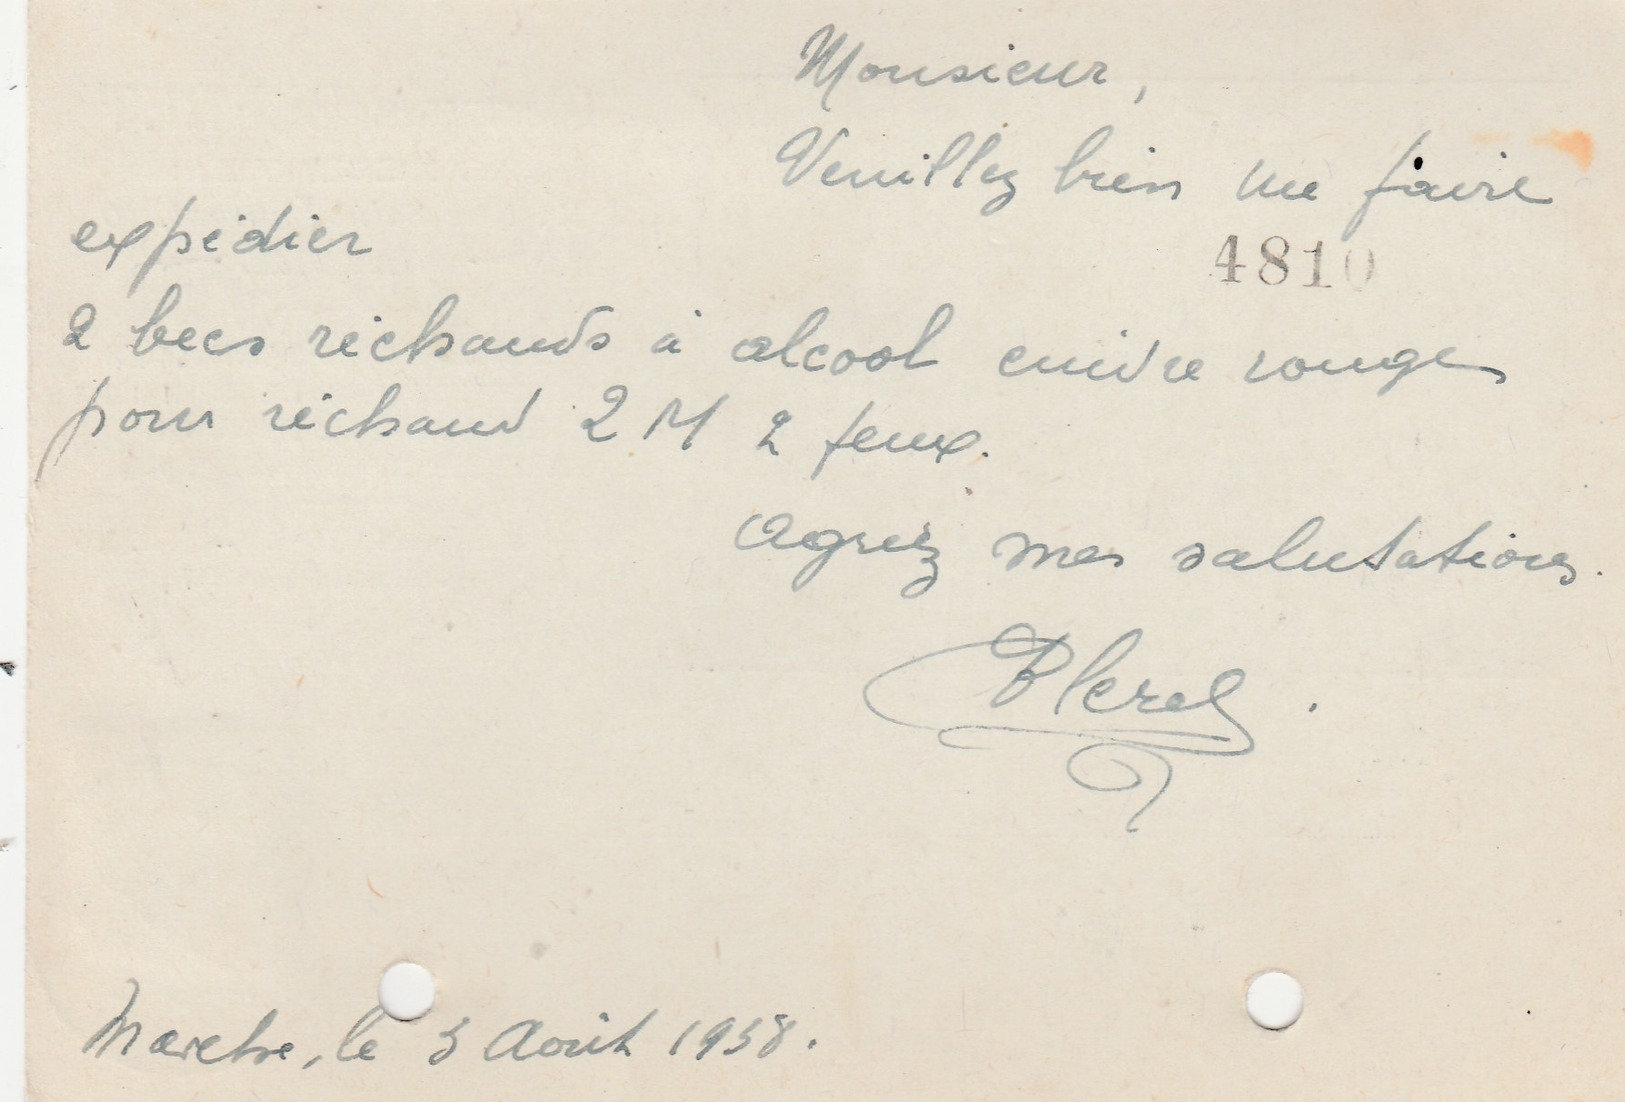 Monsieur,
Veuillez bien me faire
expédier
4810
2 becs réchauds à alcool cuivre rouge
pour réchaud 2 M 2 feux.
Agréez mes salutations.
Marche, le 5 Août 1938.